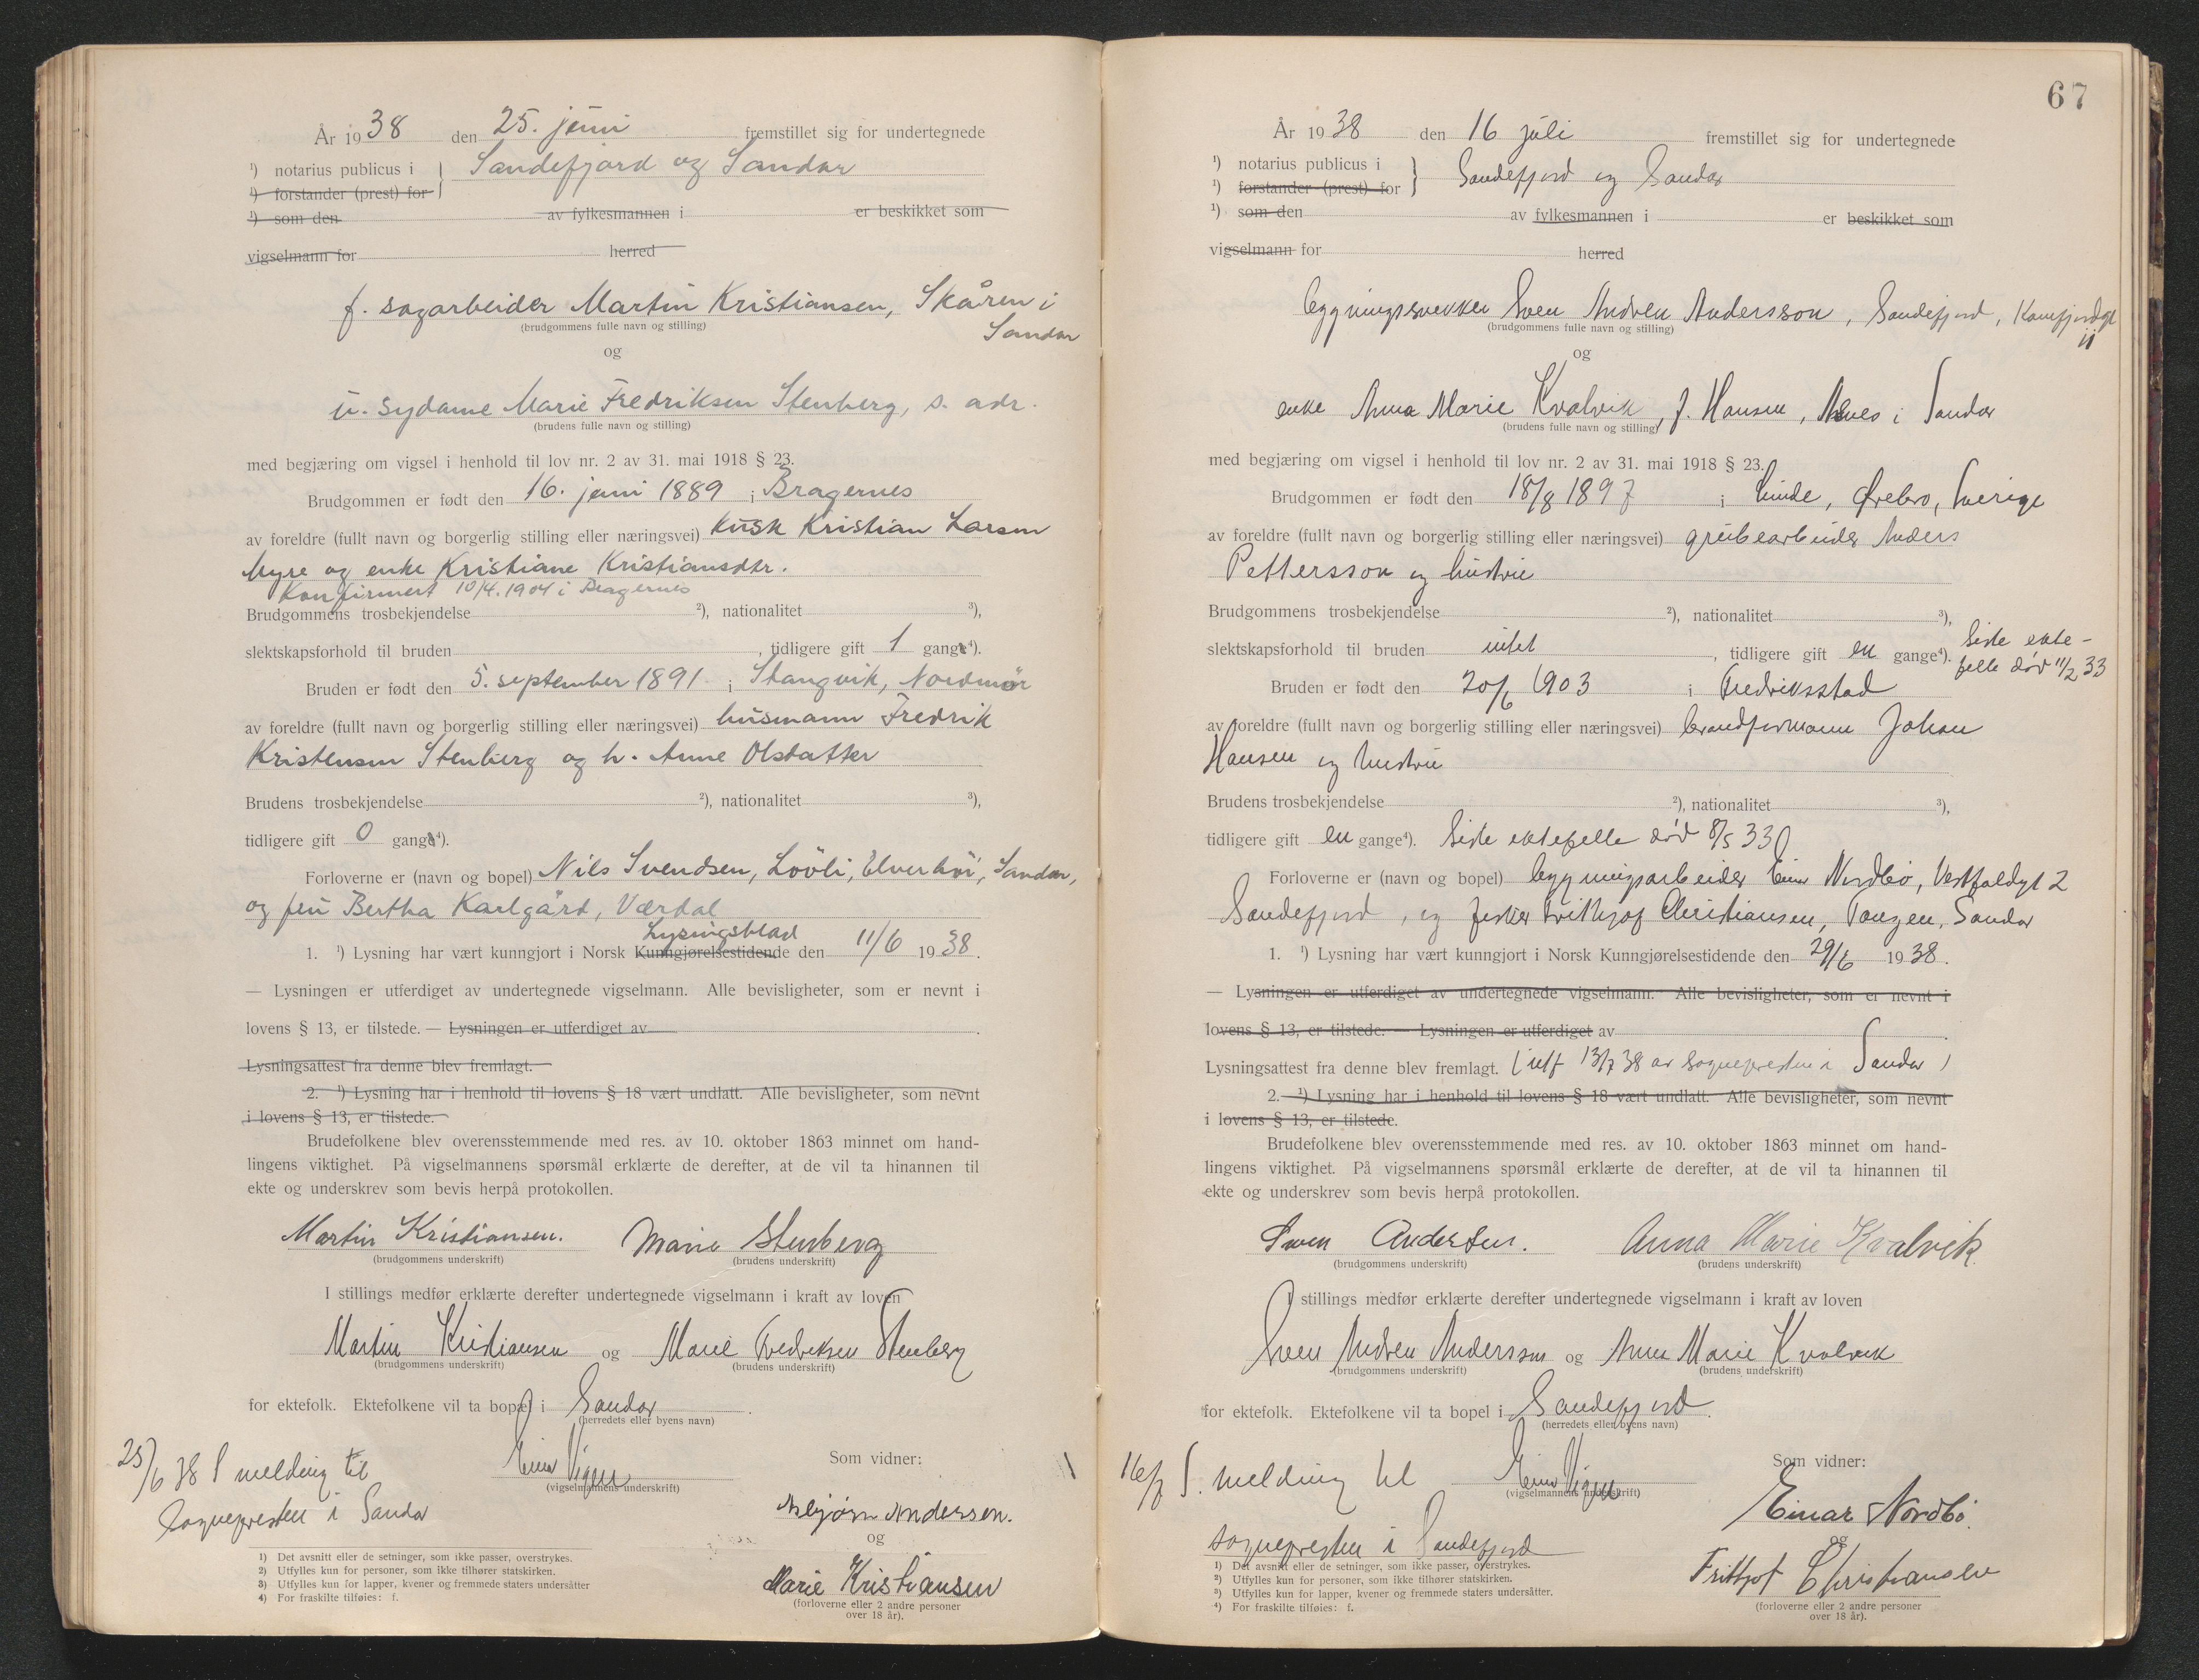 År 1938 den 25. juni fremstillet sig for undertegnede
¹) notarius publicus i } Sandefjord og Sandar
¹) forstander (prest) for
¹) som den av fylkesmannen i er beskikket som
vigselmann for herred
f. sagarbeider Martin Kristiansen, Skåren i
Sandar
(brudgommens fulle navn og stilling)
og
u. sydame Marie Fredriksen Stenberg, s. adr.
(brudens fulle navn og stilling)
med begjæring om vigsel i henhold til lov nr. 2 av 31. mai 1918 § 23.
Brudgommen er født den 16. juni 1889 i Bragernes
av foreldre (fullt navn og borgerlig stilling eller næringsvei) kusk Kristian Larsen
Myre og enke Kristiane Kristiansdtr.
Konfirmert 10/4.1904 i Bragernes
Brudgommens trosbekjendelse ²), nationalitet ³),
slektskapsforhold til bruden , tidligere gift 1 gange⁴).
Bruden er født den 5. september 1891 i Stangvik, Nordmør
av foreldre (fullt navn og borgerlig stilling eller næringsvei) husmann Fredrik
Kristensen Stenberg og h. Anne Olsdatter
Brudens trosbekjendelse ²), nationalitet ³),
tidligere gift 0 gange⁴).
Forloverne er (navn og bopel) Nils Svendsen, Lövli, Elverhöi, Sandar,
og fru Bertha Karlgård, Værdal
Lysingsblad
1. ¹) Lysning har vært kunngjort i Norsk Kunngjørelsestidende den 11/6 1938.
— Lysningen er utferdiget av undertegnede vigselmann. Alle bevisligheter, som er nevnt i
lovens § 13, er tilstede. — Lysningen er utferdiget av
Lysningsattest fra denne blev fremlagt.
2. ¹) Lysning har i henhold til lovens § 18 vært undlatt. Alle bevisligheter, som nevnt
i lovens § 13, er tilstede.
Brudefolkene blev overensstemmende med res. av 10. oktober 1863 minnet om hand-
lingens viktighet. På vigselmannens spørsmål erklærte de derefter, at de vil ta hinannen til
ekte og underskrev som bevis herpå protokollen.
Martin Kristiansen. Marie Stenberg
(brudgommens underskrift) (brudens underskrift)
I stillings medfør erklærte derefter undertegnede vigselmann i kraft av loven
Martin Kristiansen og Marie Fredriksen Stenberg
(brudgommens underskrift) (brudens underskrift)
for ektefolk. Ektefolkene vil ta bopel i Sandar.
(herredets eller byens navn)
25/6 38 S melding til
sognepresten i Sandar
(vigselmannens underskrift)
Som vidner:
Asbjørn Andersen.
og
Marie Kristiansen
(forloverne eller 2 andre personer
over 18 år).
1) Det avsnitt eller de setninger, som ikke passer, overstrykes.
2) Utfylles kun for personer, som ikke tilhører statskirken.
3) Utfylles kun for lapper, kvener og fremmede staters undersåtter
4) For fraskilte tilføies: f.
67
År 1938 den 16 juli fremstillet sig for undertegnede
¹) notarius publicus i } Sandefjord og Sandar
¹) forstander (prest) for
¹) som den av fylkesmannen i er beskikket som
vigselmann for herred
bygningssnekker Sven Andren Andersson, Sandefjord,
(brudgommens fulle navn og stilling)
og
enke Anna Marie Kvalvik, f. Hansen, i Sandar
(brudens fulle navn og stilling)
med begjæring om vigsel i henhold til lov nr. 2 av 31. mai 1918 § 23.
Brudgommen er født den 18/8 1897 i Linde, Ørebro, Sverige
av foreldre (fullt navn og borgerlig stilling eller næringsvei) grubearbeider Anders
Pettersson og hustru
Brudgommens trosbekjendelse ²), nationalitet ³),
slektskapsforhold til bruden intet , tidligere gift en gange⁴). Siste ekte-
felle død 11/2 33
Bruden er født den 20/6 1903 i Fredriksstad
av foreldre (fullt navn og borgerlig stilling eller næringsvei) brandformann Johan
Hansen og hustru
Brudens trosbekjendelse ²), nationalitet ³),
tidligere gift en gange⁴). Siste ektefelle død 8/5 33
Forloverne er (navn og bopel) bygningsarbeider Einar Nordbö, Vestfoldgt 2
Sandefjord, og fisker Frithjof Christiansen, Tangen, Sandar
1. ¹) Lysning har vært kunngjort i Norsk Kunngjørelsestidende den 29/6 1938.
— Lysningen er utferdiget av undertegnede vigselmann. Alle bevisligheter, som er nevnt i
lovens § 13, er tilstede. — Lysningen er utferdiget av
Lysningsattest fra denne blev fremlagt. (utf 13/7 38 av sognepresten i Sandar)
2. ¹) Lysning har i henhold til lovens § 18 vært undlatt. Alle bevisligheter, som nevnt
i lovens § 13, er tilstede.
Brudefolkene blev overensstemmende med res. av 10. oktober 1863 minnet om hand-
lingens viktighet. På vigselmannens spørsmål erklærte de derefter, at de vil ta hinannen til
ekte og underskrev som bevis herpå protokollen.
Sven Andersen. Anna Marie Kvalvik.
(brudgommens underskrift) (brudens underskrift)
I stillings medfør erklærte derefter undertegnede vigselmann i kraft av loven
Sven Andren Andersson og Anna Marie Kvalvik
(brudgommens underskrift) (brudens underskrift)
for ektefolk. Ektefolkene vil ta bopel i Sandefjord.
(herredets eller byens navn)
16/7 S. melding til
sognepresten i Sandefjord
(vigselmannens underskrift)
Som vidner:
Einar Nordbö.
og
Frithjof Christiansen
(forloverne eller 2 andre personer
over 18 år).
1) Det avsnitt eller de setninger, som ikke passer, overstrykes.
2) Utfylles kun for personer, som ikke tilhører statskirken.
3) Utfylles kun for lapper, kvener og fremmede staters undersåtter.
4) For fraskilte tilføies: f.